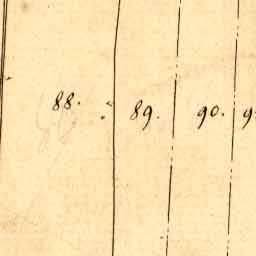 88. 89. 90. 9